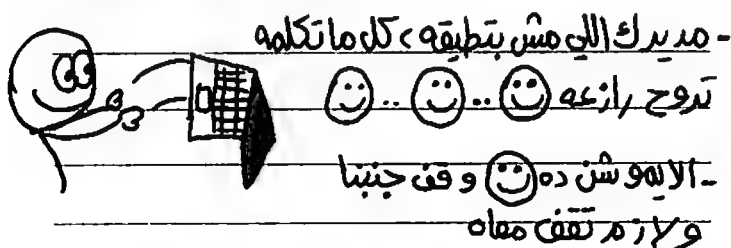 - مديرك اللي مش بتطيقه، كل ما تكلمه
تروح رازعه ☺ .. ☺ .. ☺
- الايموشن ده ☺ وقف جنبنا
ولازم تقف معاه